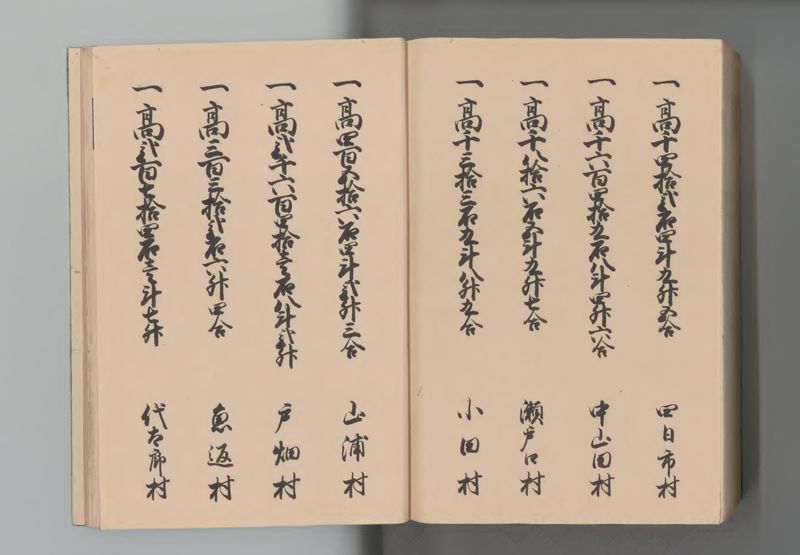 一高千四拾弐石四斗九升五合 四日市村
一高千六百四拾五石八斗四升六合 中山田村
一高千八拾六石五斗九升七合 瀬戸口村
一高千三拾三石五斗八升五合 小田村
一高四百五拾六石四斗弐升三合 山浦村
一高弐千六百四拾壱石八斗弐升 戸畑村
一高三百三拾弐石六升四合 魚返村
一高弐百七拾四石三斗七升 代太郎村